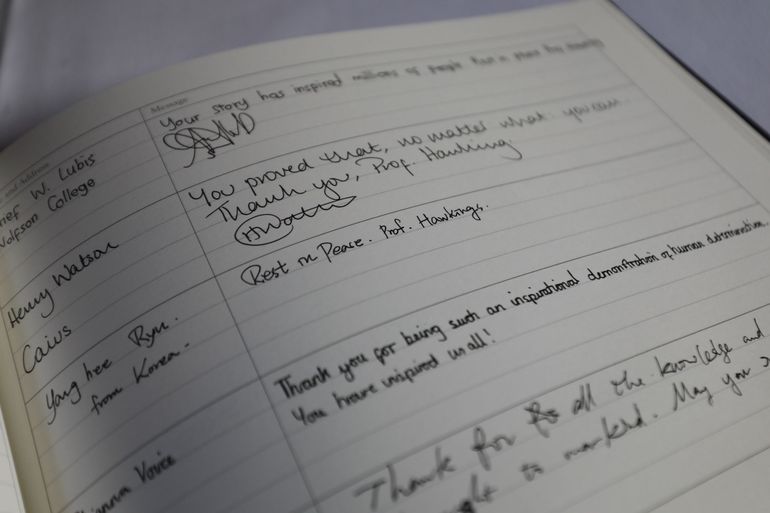 Name and Address
Message
W. Lubis
Wolfson College
Your story has inspired millions of people
Henry Watson
Caius
You proved that, no matter what you can.
Thank you, Prof. Hawking
HWatson
Yang hee Ryu.
from Korea.
Rest in Peace. Prof. Hawkings.
Thank you for being such an inspirational demonstration of human determination.
You have inspired us all!
Thank for all the knowledge and
to mankind. May you